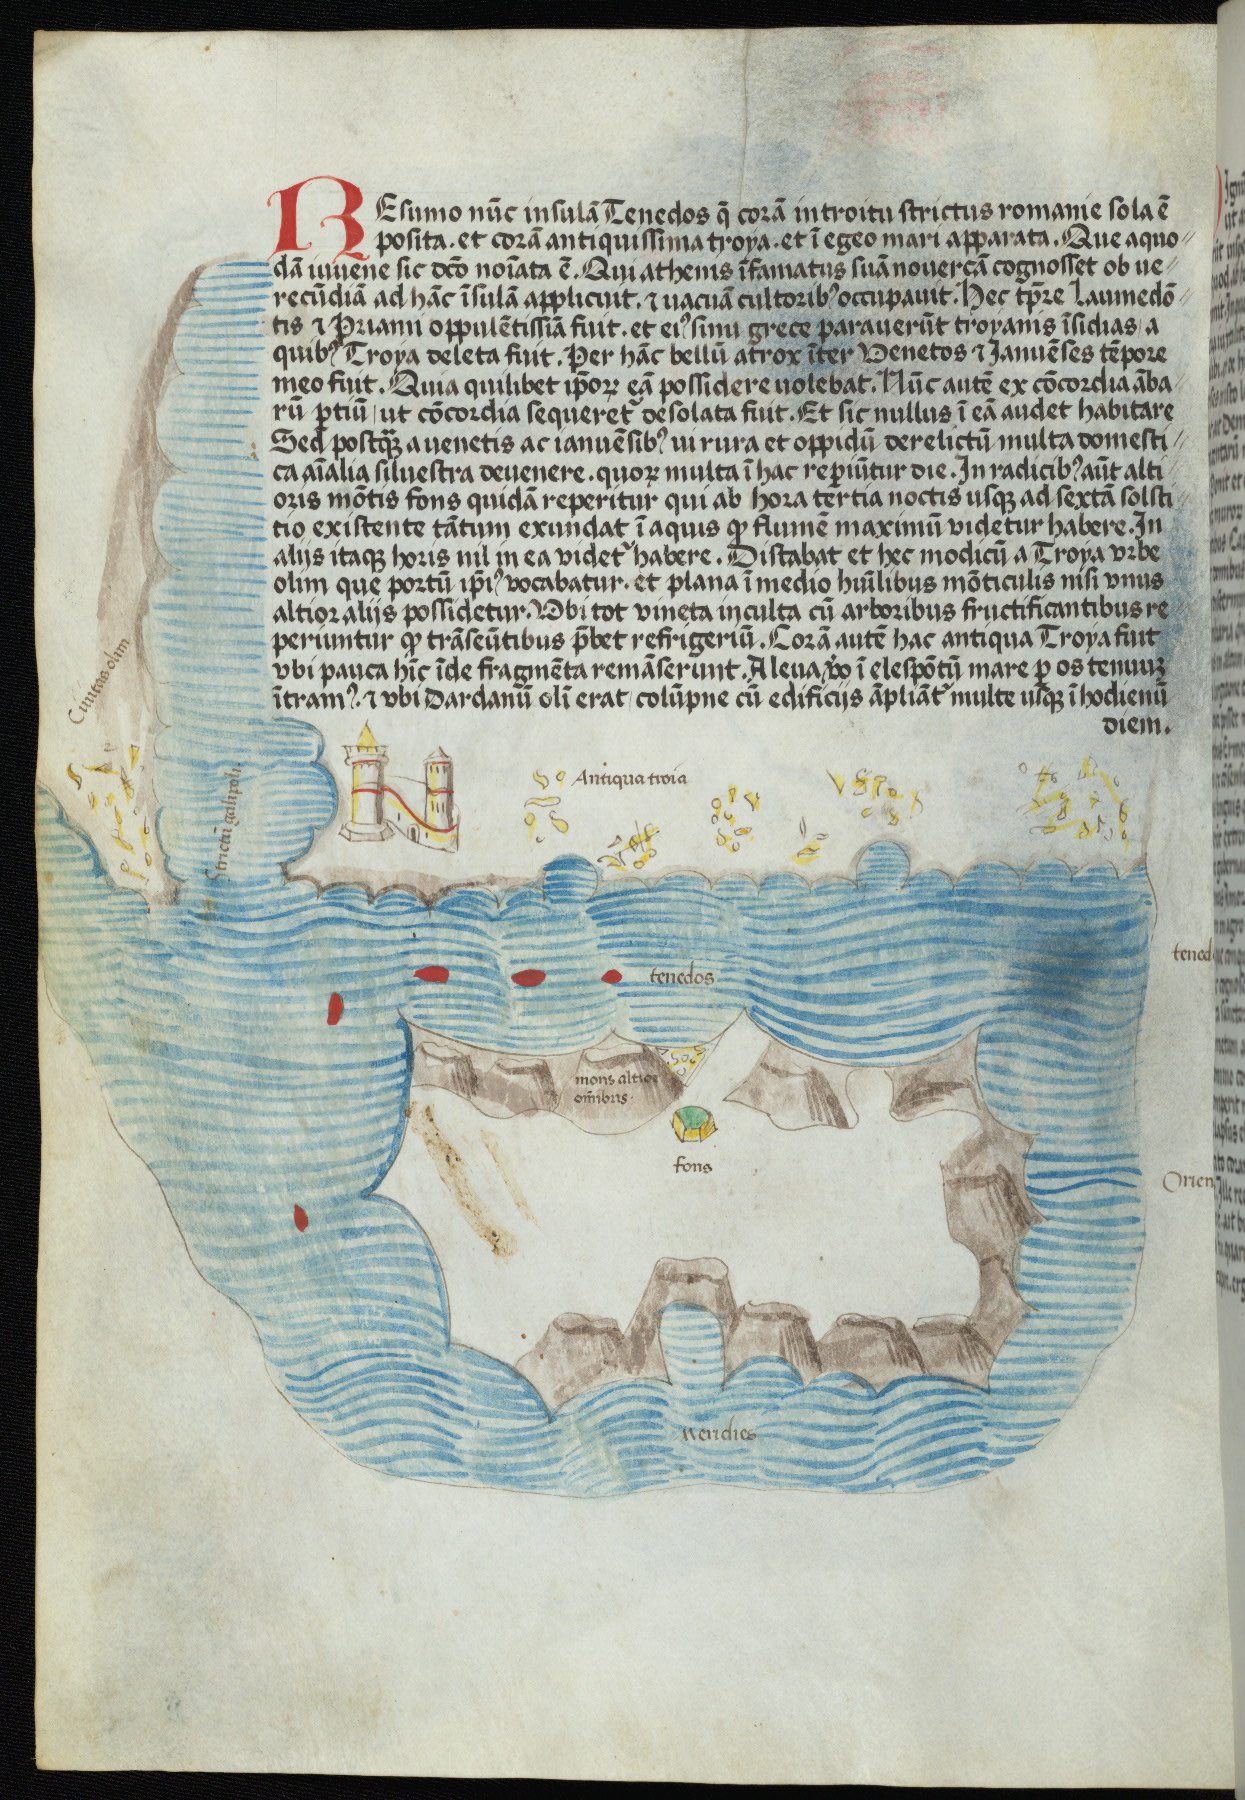 REsumo nūc insulā Tenedos q̄ corā introitu strictus romanie sola ē
posita. et corā antiquissima troya. et ī egeo mari apparata. Que a quo
dā iuvene sic dc̄o noīata ē. Qui athenis īfamatus suā novercā cognosset ob ve
recūdiā ad hāc īsulā applicuit. ⁊ vacuā cultorib⁹ occupauit. Hec tp̄re Laumedō
tis ⁊ Priami oppulētissīa fuit. et ei⁹ sinu grece parauerūt troyanis īsidias a
quib⁹ Troya deleta fuit. Per hāc bellū atrox īter Venetos ⁊ Janvēses tēpore
meo fuit. Quia quilibet ip̄oꝝ eā possidere uolebat. Nūc autē ex cōcordia āba
rū ꝑtiū ut cōcordia sequeret᷑ desolata fuit. Et sic nullus ī eā audet habitare
Sed postq̄ꝫ a uenetis ac ianvēsib⁹ ui rura et oppidū derelictū multa domesti
ca aīalia silvestra devenere. quoꝝ multa ī hac reperiūtur die. In radicib⁹ aūt alti
oris mōtis fons quidā reperitur qui ab hora tertia noctis usqꝫ ad sextā solsti
tio existente tātum exundat ī aquis ꝙ flumē maximū videtur habere. In
aliis itaqꝫ horis nil in ea videt᷑ habere. Distabat et hec modicū a Troya vrbe
olim que portū ip̄i⁹ vocabatur. et plana ī medio huīlibus mōticulis nisi vnus
altior aliis possidetur. Vbi tot vineta inculta cū arboribus fructificantibus re
periuntur ꝙ trāseūtibus p̄bet refrigeriū. Corā autē hac antiqua Troya fuit
vbi pauca hīc īde fragmēta remāserunt. A leva v̄o ī elespōtū mare ꝑ os tenuuꝫ
ītram⁹. ⁊ vbi Dardanū olī erat colūpne cū edificiis āpliāt᷑ multe usqꝫ ī hodienū
diem.
Ciuitas olim
strictū galipoli
Antiqua troia
tenedos
mons altior
om̄ibus.
fons
tened
Orien
Meridies